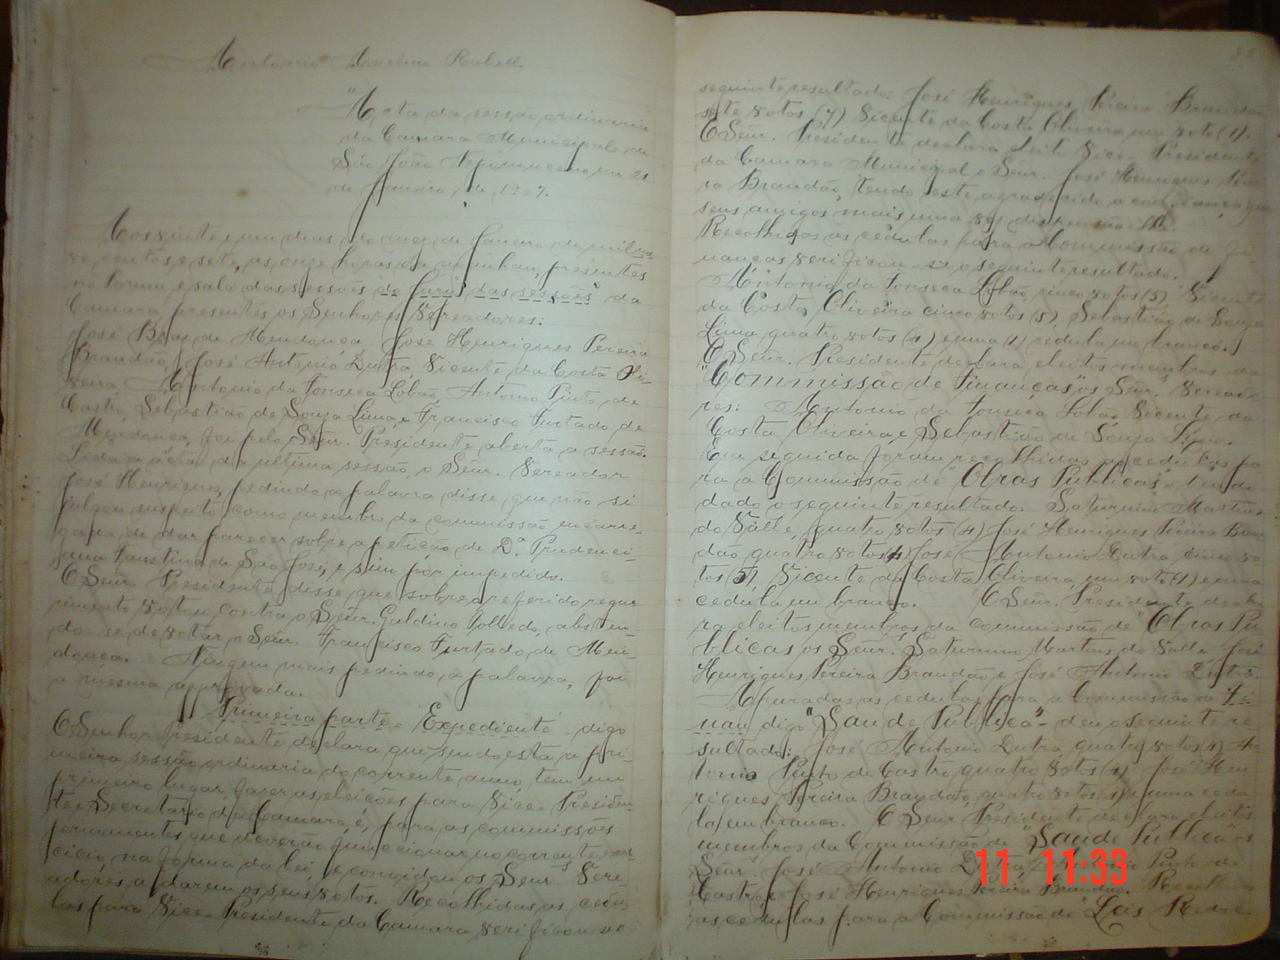 Antonio Anselmo Rabell
"Acta da sessão ordinaria
da Camara Municipal de
São João Nepomuceno em 21
de Janeiro de 1907.
Aos vinte e um dias do mez de Janeiro de mil no-
ve centos e sete, as onze horas da manhan, presentes
no forum e sala das sessões do Jury das sessões da
Camara, presentes os Senhores Vereadores:
José Braz de Mendonça, José Henriques Pereira
Brandão, José Antonio Dutra, Vicente da Costa Oli-
veira, Antonio da Fonseca Lobão, Antonio Pinto de
Castro, Sebastião de Souza Lima e Francisco Furtado de
Mendonça, foi pelo Señr. Presidente aberta a sessão.
Lida a acta da ultima sessão, o Señr. Vereador
José Henriques, pedindo a palavra disse que não se
julgou suspeito como membro da commissão encarre-
gada de dar parecer sobre a petição de D.ª Prudenci-
ana Faustina de São José, e sim por impedido.
O Señr. Presidente disse que sobre o referido reque-
rimento votou contra o Señr. Galdino Tolledo, absten-
do-se de votar o Señr. Francisco Furtado de Men-
donça. Ningem mais pedindo a palavra, foi
a mesma approvada.
Primeira parte - "Expediente" digo
O Senhor Presidente declara que sendo esta a pri-
meira sessão ordinaria do corrente anno, tem em
primeiro lugar fazer as eleições para Vice-Presiden-
te e Secretario da Camara e, para as commissões
permanentes que deverão funccionar no corrente exer-
cicio, na forma da lei, e convidou os Señr. Vere-
adores a darem os seus votos. Recolhidas as cedu-
las para Vice-Presidente da Camara verificou-se
seguinte resultado: José Henriques Pereira Brandão
sete votos (7) Vicente da Costa Oliveira um voto (1).
O Señr. Presidente declara eleito Vice-Presidente
da Camara Municipal o Señr. José Henriques Perei-
ra Brandão, tendo este agradecido a confiança que
seus amigos mais uma vez
Recolhidas as cedulas para a Commissão de Fi-
nanças verificou-se o seguinte resultado.
Antonio da Fonseca Lobão, cinco votos (5), Vicente
da Costa Oliveira cinco votos (5), Sebastião de Souza
Lima quatro votos (4) e uma (1) cedula em branco.
O Señr. Presidente declara eleitos membros da
"Commissão de Finanças" os Señr. Vereado-
res: Antonio da Fonseca Lobão, Vicente da
Costa Oliveira, e Sebastião de Souza Lima.
Em seguida foram recolhidas as cedulas pa-
ra a Commissão de "Obras Publicas" tendo
dado o seguinte resultado: Saturnino Martins
do Valle, quatro votos (4) José Henriques Pereira Bran-
dão quatro votos (4) José Antonio Dutra cinco vo-
tos (5), Vicente da Costa Oliveira, um voto (1) e uma
cedula em branco. O Señr. Presidente decla-
ra eleitos membros da commissão de "Obras Pu-
blicas os Señr. Saturnino Martins do Valle, José
Henriques Pereira Brandão e José Antonio Dutra.
Apuradas as cedulas para a Commissão de Fi-
nan digo "Saude Publica" - deu o seguinte re-
sultado: José Antonio Dutra quatro votos (4) An-
tonio Pinto de Castro quatro votos (4) José Hen-
riques Pereira Brandão, quatro votos (4) e uma cedu-
la em branco. O Señr. Presidente declara eleitos
membros da Commissão de "Saude Publica os
Señr. José Antonio Dutra, Antonio Pinto de
Castro e José Henriques Pereira Brandão. Recolhidas
as cedulas para a Commissão de "Leis Redac
11 11:33